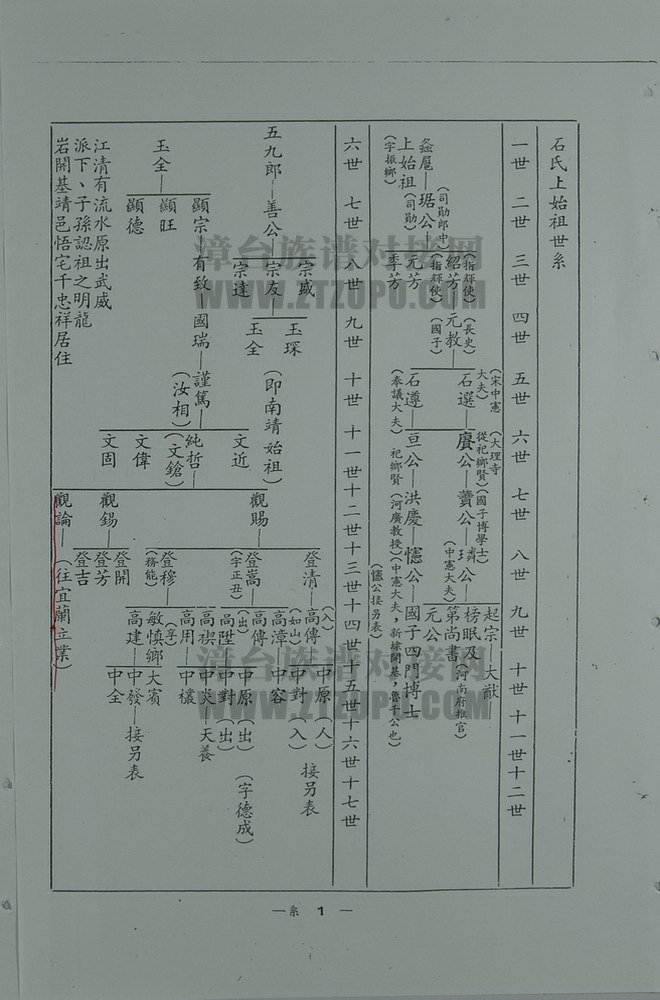 石氏上始祖世系
一世 二世 三世 四世 五世 六世 七世 八世 九世 十世 十一世 十二世
起宗 大猷
榜眼及
第尚書（河南府推官）
元公
（宋中憲大夫）
（大理寺
從祀鄉賢）
（國子博學士）
（指輝使）（長史）
紹芳 元教 石選 賡公 賣公 璘公
（中憲大夫）
（指輝使）（國子）
（司勛郎中）
螽扈 琚公 元芳 石遵 亘公 洪慶 憲公 國子四門博士
（奉議大夫）祀鄉賢（河廣教授）（中憲大夫，新
（憲公接另表）
上始祖（司勛）季芳
（字振鄉）
六世 七世 八世 九世 十世 十一世 十二世 十三世 十四世 十五世 十六世 十七世
五九郎 善公 宗友 宗盛 宗達
玉琛
玉全
（即南靖始祖）
玉全 顯宗 有致 國瑞 謹篤（汝相）純哲（文鎗）
顯旺
顯德
文近
文偉
文固
觀賜 登清 高傳（入）中原（入）接另表
（如山）中對（入）
高漳 中容
登嵩（字正丑）高傳（出）中原（出）（字德成）
高陞 中對（出）
高禊 中炎 天養
高用 中禯
觀錫 登穆（務能）
敏慎鄉大賓
高建 中發 接另表
中全
登開
登芳
登吉
觀論（往宜蘭立業）
江清有流水原出武威
派下、子孫認祖之明龍
岩開基靖邑悟宅千忠祥居住
漳台族谱对接网
WWW.ZTZUPU.COM
漳台族谱对接网
WWW.ZTZUPU.COM
一系 1 一